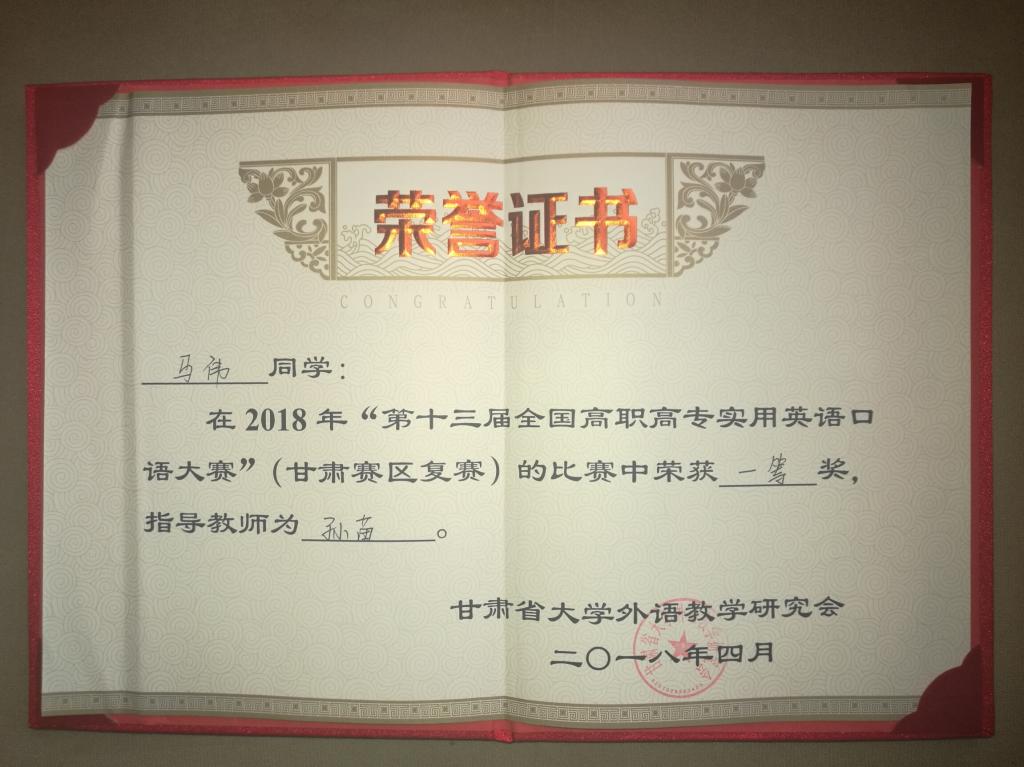 荣誉证书
CONGRATULATION
马伟同学：
在2018年“第十三届全国高职高专实用英语口
语大赛”（甘肃赛区复赛）的比赛中荣获一等奖，
指导教师为孙苗。
甘肃省大学外语教学研究会
二〇一八年四月